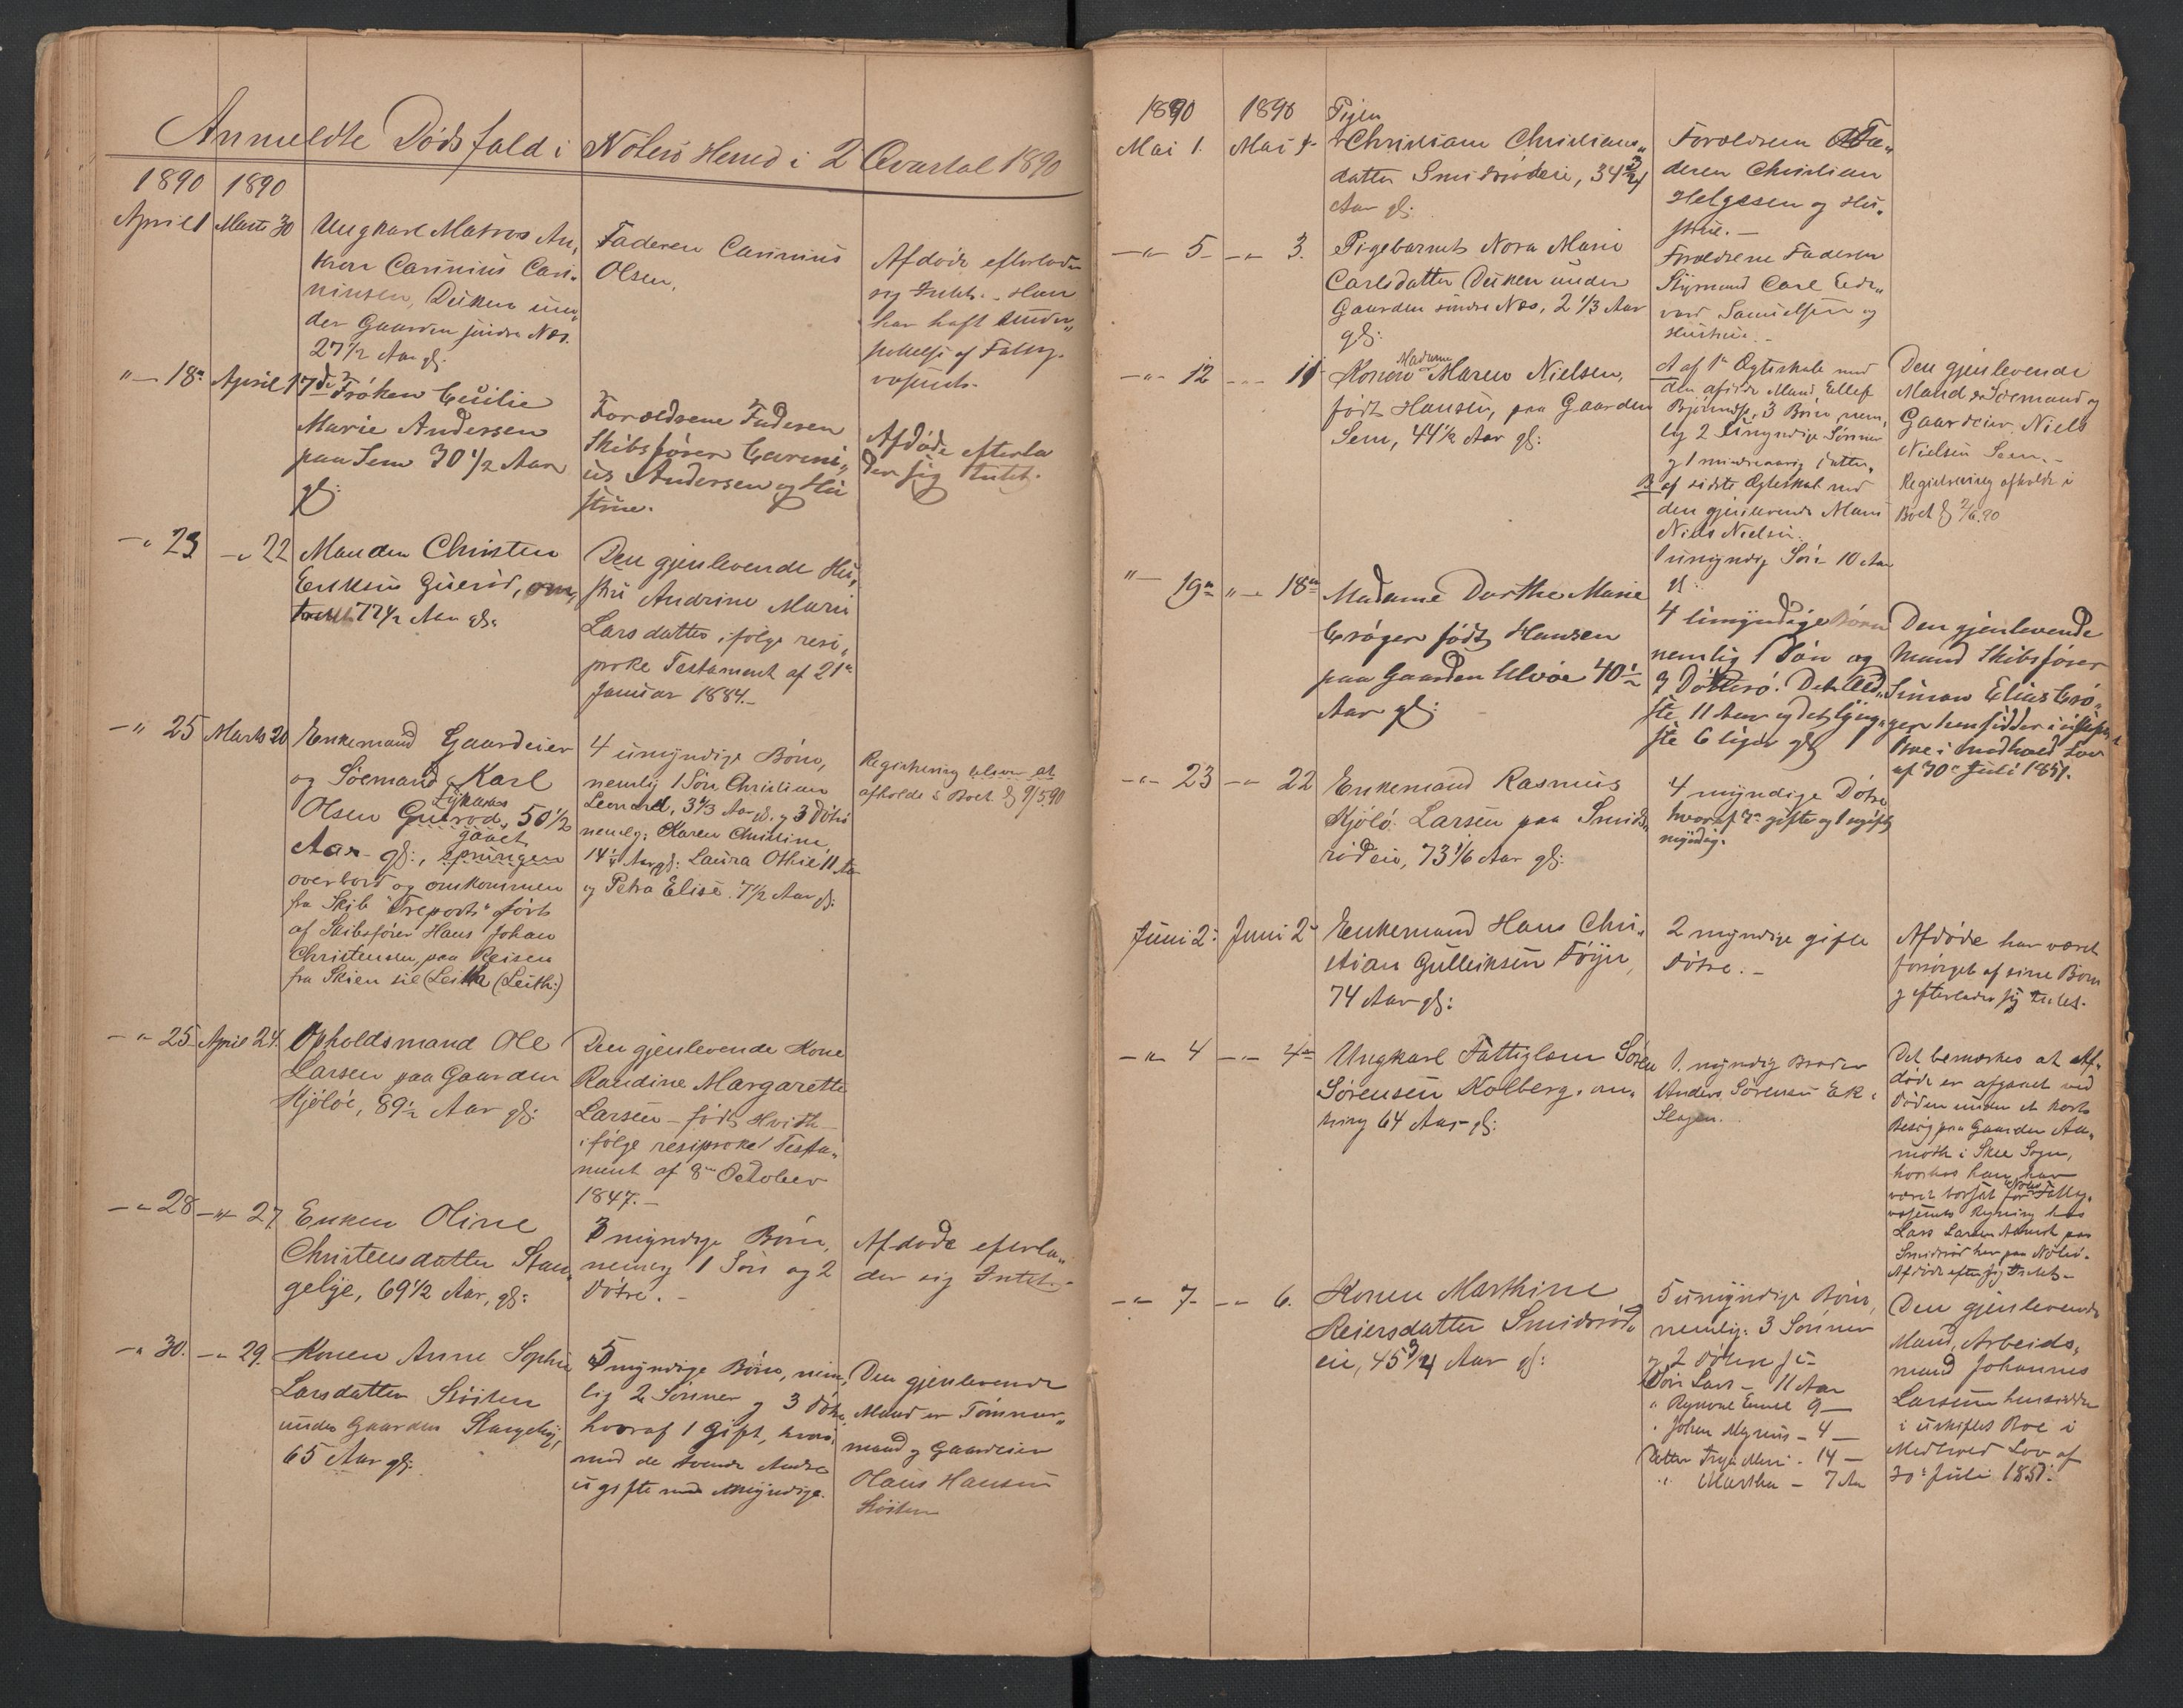 Anmeldte Dødsfald i Nøterø Herred i 2 Qvartal 1890
1890 1890
April 1 Marts 30 Ungkarl Matros An,
Carinius Cari„
ninsen, Duken un„
der Gaarden søndre Næs.
27 1/2 Aar gl:
Faderen Carinius
Olsen.
Afdøde efterlader
sig Intet. Han
har haft Under„
støttelse af Fattig„
væsenet.
"— 18n April 17de Frøken Cecilie
Marie Andersen
paa Sem 30 1/2 Aar
gl:
Forældrene Faderen
Skibsfører Carini„
us Andersen og Hu
strue.
Afdøde efterla
der sig Intet.
—" 23 —" 22 Manden Christen
Eriksen Guerød, om„
trent 77 1/2 Aar gl.
Den gjenlevende Hu„
stru Andrine Marie
Larsdatter ifølge resi„
proke Testament af 21n
Januar 1884.—
—" 25 Marts 20 Enkemand Gaardeier
og Søemand Karl
Olsen Guerød, 50 1/2
Aar gl:, sprungen
gaaet
overbord og omkommen
fra Skib "Treport" ført
af Skibsfører Hans Johan
Christensen, paa Reisen
fra Skien til (Leith:)
4 umyndige Børn,
nemlig 1 Søn Christian
Leonard, 3 1/3 Aar gl. og 3 Døtre
nemlig: Karen Christine,
14 1/4 Aar gl: Laura Othilie 11 Aar
og Petra Elise 7 1/2 Aar gl:
Registrering bliver at
afholde i Boet d 9/5 90
—" 25 April 24. Opholdsmand Ole
Larsen paa Gaarden
Kjøløe, 89 1/2 Aar gl:
Den gjenlevende Kone
Randine Margarette
Larsen — født Hvidt —
ifølge resiproke Testa„
ment af 8de October
1847.—
—" 28 —"— 27 Enken Oline
Christensdatter Stan„
gebye, 69 1/2 Aar, gl:
3 myndige Børn,
nemlig 1 Søn og 2
Døtre. —
Afdøde efterla„
der sig Intet.
—" 30. —" 29. Konen Anne Sophie
Larsdatter Støiten
under Gaarden Stangeby,
65 Aar gl:
5 myndige Børn, nem„
lig 2 Sønner og 3 Døtre
hvoraf 1 gift, hvori„
mod de tvende Andre
ugifte
Den gjenlevende
Mand er Tømmer„
mand og Gaardeier
Olaus Hansen
Støiten
1890 1890
Mai 1. Mai 1. Pigen
Christiane Christians„
datter Smidsrødeie, 34 3/4
Aar gl:
Forældrene Fa„
deren Christian
Helgesen og Hu„
strue. —
—"— 5— —" 3. Pigebarnet Nora Marie
Carlsdatter Duken under
Gaarden søndre Næs, 2 1/3 Aar
gl:
Forældrene Faderen
Styrmand Carl Ed„
vard Samuelsen og
Hustrue. —
—"— 12 —"— 11 Konen Madame Maren Nielsen,
født Hansen, paa Gaarden
Sem, 44 1/2 Aar gl:
A af 1n Ægteskab med
den afdøde Mand, Ellef
3 Børn, nem„
lig 2 umyndige Sønner
og 1 mindreaarig Datter,
B af sidste Ægteskab med
den gjenlevende Mand
Niels Nielsen.
1 umyndig Søn 10 Aar
gl:
Den gjenlevende
Mand er Sømand og
Gaardeier Niels
Nielsen Sem. —
Registrering afholdt i
Boet d 2/6 90
"— 19n "—" 18n Madame Dorthe Marie
Crøger født Hansen
paa Gaarden Ulvøe 40 1/2
Aar gl:
4 umyndige Børn
nemlig 1 Søn og
3 Døttre. Det æld„
ste 11 Aar og det yng„
ste 6 Uger gl:
Den gjenlevende
Mand Skibsfører
Simon Elias Crø„
ger hensidder i uskiftet
Boe i Medhold Lov
af 30n Juli 1851.
—"— 23 —"— 22 Enkemand Rasmus
Kjølø Larsen paa Smids„
rødeie, 73 1/6 Aar gl:
4 myndige Døtre
hvoraf 3n gifte og 1 ugift
myndig.
Juni 2. Juni 2 Enkemand Hans Chri„
stian Gulliksen Føyn,
74 Aar gl:
2 myndige gifte
Døtre. —
Afdøde har været
forsørget af sine Børn
og efterlader sig Intet.
—"— 4 —"— 4 Ungkarl Fattiglem Søren
Sørensen Kolberg, om„
kring 64 Aar gl:
1 myndig Broder
Anders Sørensen Ek i
Slagen.
Det bemærkes at Af„
døde er afgaaet ved
Døden under et kort
Besøg paa Gaarden Aa„
moth i Skee Sogn,
hvorhos han har
været bortsat for Nøtterø Fattig„
væsens Regning hos
Lars Larsen paa
Smidsrød her paa Nøterø.
Afdøde efter sig Intet —
—"— 7— —"— 6. Konen Marthine
Reiersdatter Smidsrød„
eie, 45 3/4 Aar gl:
5 umyndige Børn,
nemlig: 3 Sønner
og 2 Døtre
Søn Lars — 11 Aar
" Emil 9 —
" Johan Magnus — 4 —
Datter — 14 —
" Marthe — 7 Aar
Den gjenlevende
Mand, Arbeids„
mand Johannes
Larsen hensidder
i uskiftet Boe i
Medhold Lov af
30n Juli 1851.